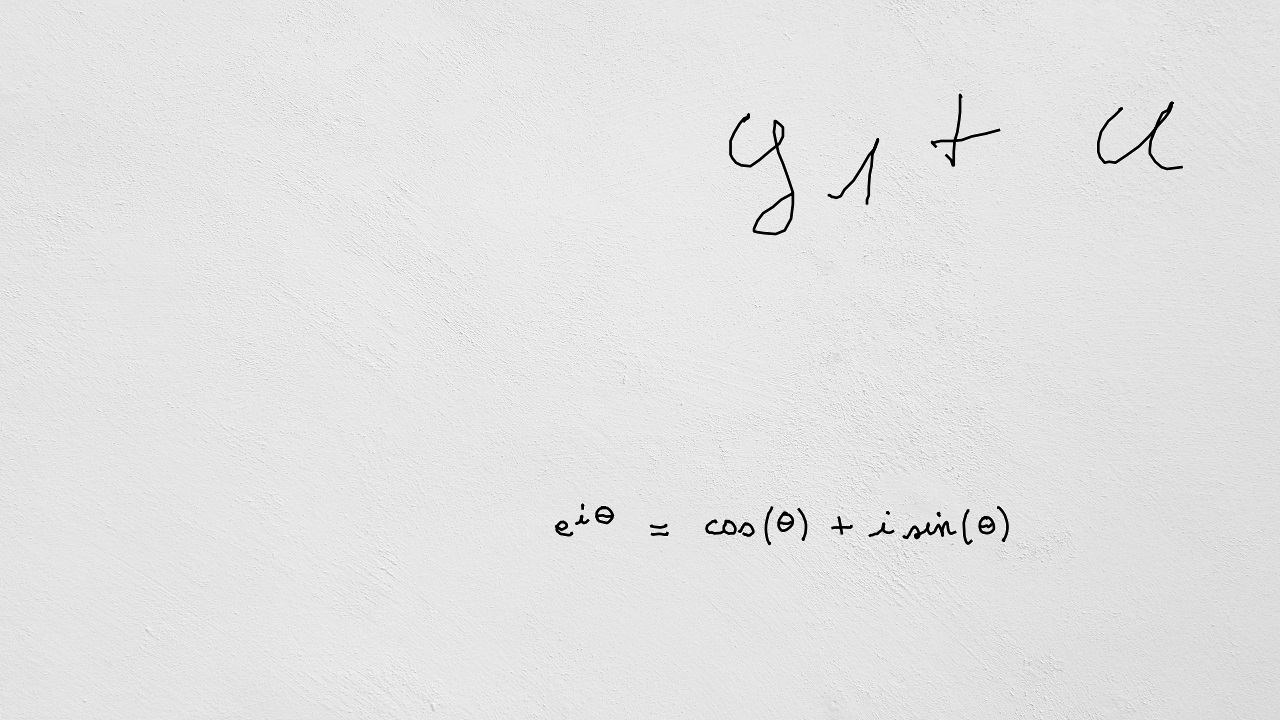 y₁ + u
e^{iθ} = cos(θ) + i sin(θ)